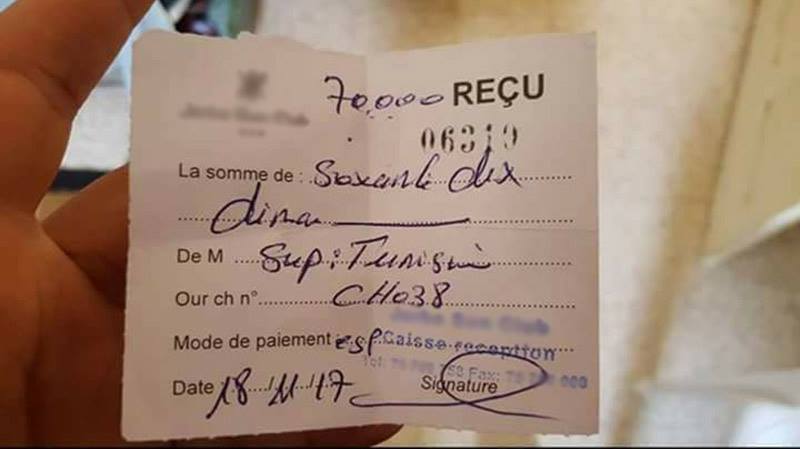 70,000 REÇU
06319
La somme de : Soxante dix
dina
De M Sup: Tunisi
Our ch n° CH038
Mode de paiement : esp
Caisse reception
Date 18/11/17 Signature